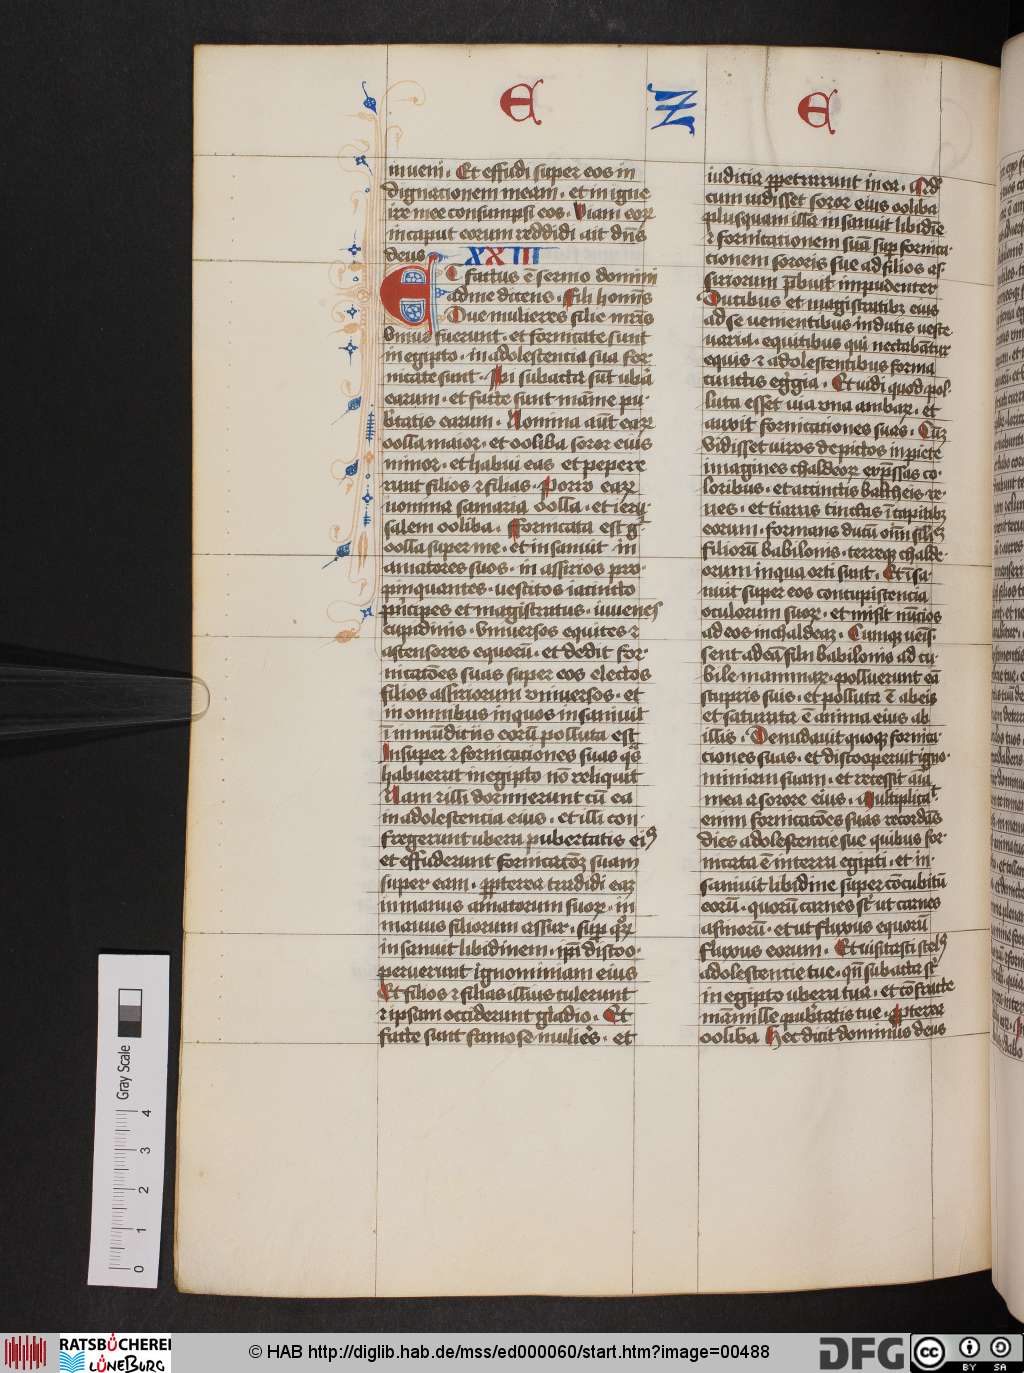 E Z E
inveni · Et effudi super eos in
dignationem meam · et in igne
ire mee consumpsi eos · Viam eoꝝ
in caput eorum reddidi ait dn̄s
deus XXIII
ET fattus ē sermo domini
ad me dicens · Fili hom̄s
Due mulieres filie mr̄is
vnius fuerunt · et fornicate sunt
in egipto · in adolescentia sua for
nicate sunt · Ibi subacta sūt ub̄a
earum · et fratte sunt ma͞me pu·
b̄tatis earum · Nomina aūt eaꝝ
oolla maior · et ooliba soror eius
minor · et habui eas et pepere
runt filios ⁊ filias · Porro eaꝝ
nomina samaria oolla · et ieru
salem ooliba · Fornicata est gͦ
oolla super me · et insanuit in
amatores suos · in assirios pro·
pinquantes · vestitos iacincto
pⁱncipes et magistratus · iuuenes
cupidinis · vniversos equites ⁊
astensores equorū · et dedit for·
nicatōes suas super eos electos
filios assiriorum vniversos · et
in omnibus in quos insaniuit
ī inmuditiis eorū polluta est
Insuper ⁊ fornicationes suas qͣs
habuerat in egipto nō reliquit
Nam ⁊ illi dormierunt cū ea
in adolescentia eius · et illi con·
fregerunt ubera pubertatis eiꝰ
et effuderunt fornicatōꝫ suam
super eam · ꝓpterea tradidi eaꝫ
in manus amatorum suoꝝ · in
manus filiorum assur · suꝑ qͦꝝ
insanuit libidinem · ip̄i discoo·
peruerunt ignominiam eius
Et filios ⁊ filias illius tulerunt
⁊ ipsam occiderunt gladio · Et
facte sunt famose mulieᵉs · et
iudicia ꝑpetrarunt in ea · Qd̄
cum vidisset soror eius ooliba
plusquam illa insaniuit libidīe
⁊ fornicationem suā suꝑ fornica·
tionem sororis sue ad filios as·
siriorum p̄buit impudenter
Ducibus et magistratibꝫ eius
ad se venientibus indutis veste
varia · equitibus qui vectabātur
equis ⁊ adolescentibus forma
cunctis egⁱgia · Et vidi quod pol·
luta esset via vna ambaꝝ · et
auxit fornicationes suas · Cūꝫ
vidisset viros depictos in piete
imagines chaldeoꝝ exp̄ssas co·
loribus · et accinctis baltheis re·
nes · et tiaras tinctas ī capitibꝫ
eorum · formam ducū oīm sil̄s
filiorū babilonis · terreqꝫ chalde·
orum in qua orti sunt · Et īsa·
nuit super eos concupiscentia
oculorum suoꝝ · et misit nūcios
ad eos in chaldeaꝫ · Cumqꝫ veīs·
sent ad eā filii babilonis ad cu·
bile mammaꝝ · polluerunt eā
stupris suis · et polluta ē ab eis
et saturata ē anima eius ab
illis · Denudauit quoqꝫ fornica·
ciones suas · et discooperuit igno·
miniam suam · et recessit aīa
mea a sorore eius · Multiplicaᵗ
enim fornicatōes suas recordās
dies adolescentie sue quibus for·
nicata ē in terra egipti · et in·
saniuit libidine super cōcubitū
eorū · quorū carnes st̄ ut carnes
asinorū · et ut fluxus equorū
fluxus eorum · Et visitasti scelꝰ
adolescentie tue · qn̄ subacta st̄
in egipto ubera tua · et cōfracte
mām̄ille pub̄tatis tue · ꝓpterea
ooliba Hec dicit dominus deus
Gray Scale
0 1 2 3 4
RATSBÜCHEREI
LÜNEBURG
© HAB http://diglib.hab.de/mss/ed000060/start.htm?image=00488
DFG
cc BY SA